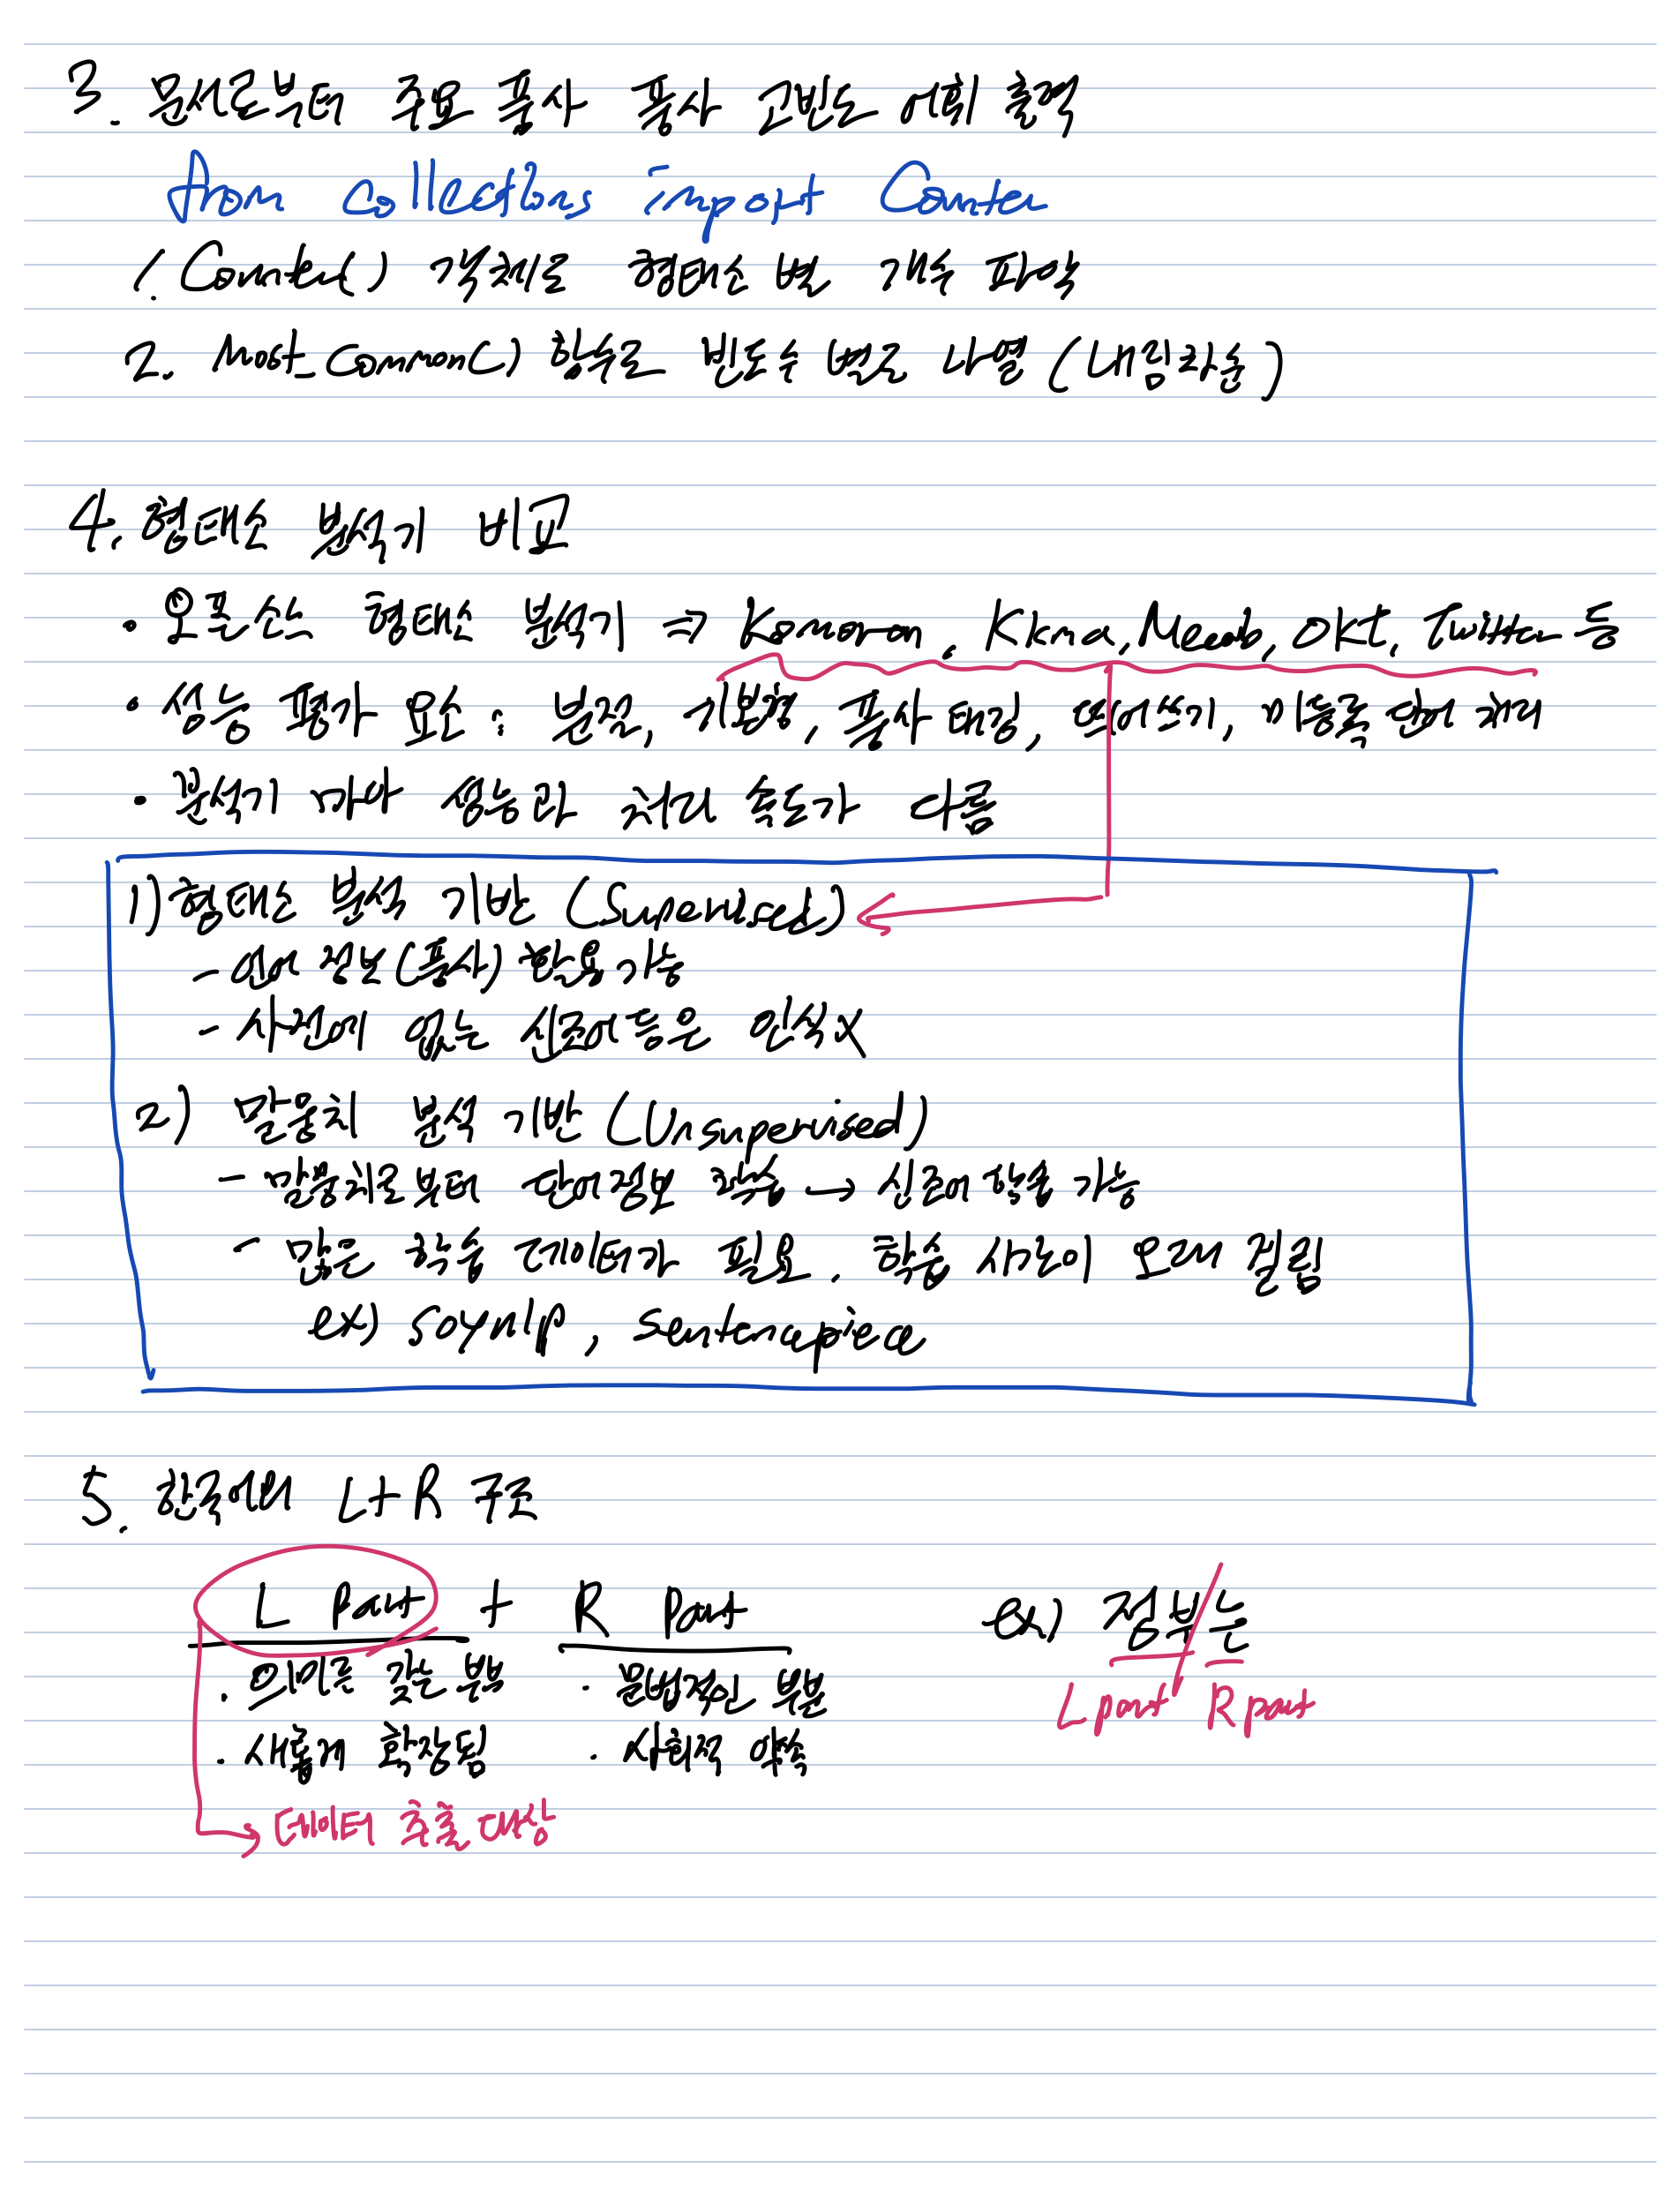 3. 문서로부터 주요 품사 품사 고빈도 어휘 출력
from collections import Counter
1. Counter() 객체로 형태소 별 개수 파악
2. Most_Common() 함수로 빈도수 별로 나열 (내림차순)
4. 형태소 분석기 비교
· 오픈소스 형태소 분석기 => Komoran, Kkma, Mecab, OKt, Twitter 등
· 성능 평가 요소 : 분절, 기본형, 품사 태깅, 띄어쓰기, 미등록 단어 처리
· 분석기 마다 성능과 처리 속도가 다름
1) 형태소 분석 기반 (Supervised)
- 언어 정보(품사) 활용 가능
- 사전에 없는 신조어등은 인식x
2) 말뭉치 분석 기반 (Unsupervised)
- 말뭉치로부터 단어정보 학습 → 신조어 학습 가능
- 많은 학습 데이터가 필요. 학습 시간이 오래 걸림
ex) soynlp, sentencepiece
5. 한국어의 L+R 구조
L Part + R Part ex) 정부/는
· 의미를 갖는 부분 · 문법적인 부분 L part R part
· 새롭게 확장됨 · 사회적 약속
데이터 추출 대상